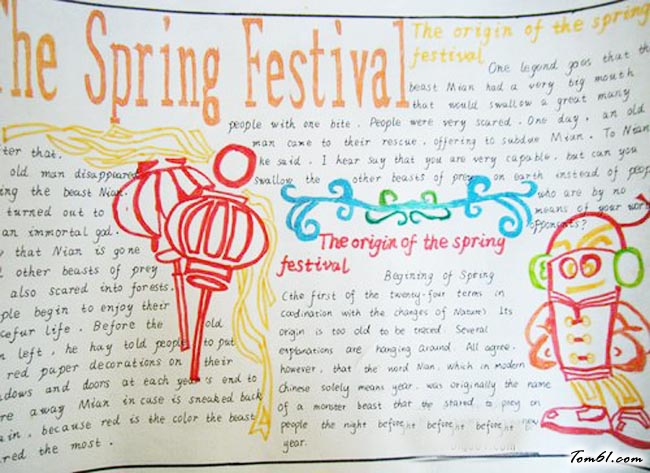 The Spring Festival
The origin of the spring
festival
One legend goes that the
beast Nian had a very big mouth
that would swallow a great many
people with one bite. People were very scared. One day, an old
man came to their rescue, offering to subdue Nian. To Nian
he said. I hear say that you are very capable, but can you
swallow the other beasts of prey on earth instead of peop
who are by no
means of your wor
opponents?
ter that.
old man disappeared
ing the beast Nian.
turned out to
an immortal god.
that Nian is gone
other beasts of prey
also scared into forests.
ple begin to enjoy their
ceful life. Before the old
n left, he hay told people to put
red paper decorations on their
dows and doors at each year's end to
re away Mian in case is sneaked back
ain, because red is the color the beast
red the most.
The origin of the spring
festival
Begining of Spring
(the first of the twenty-four terms in
coordination with the changes of Nature) Its
origin is too old to be traced. Several
explanations are hanging around. All agree.
however, that the word Nian, which in modern
Chinese solely means year, was originally the name
of a monster beast that the stared to prey on
people the night before before before new
year.
Tom61.com